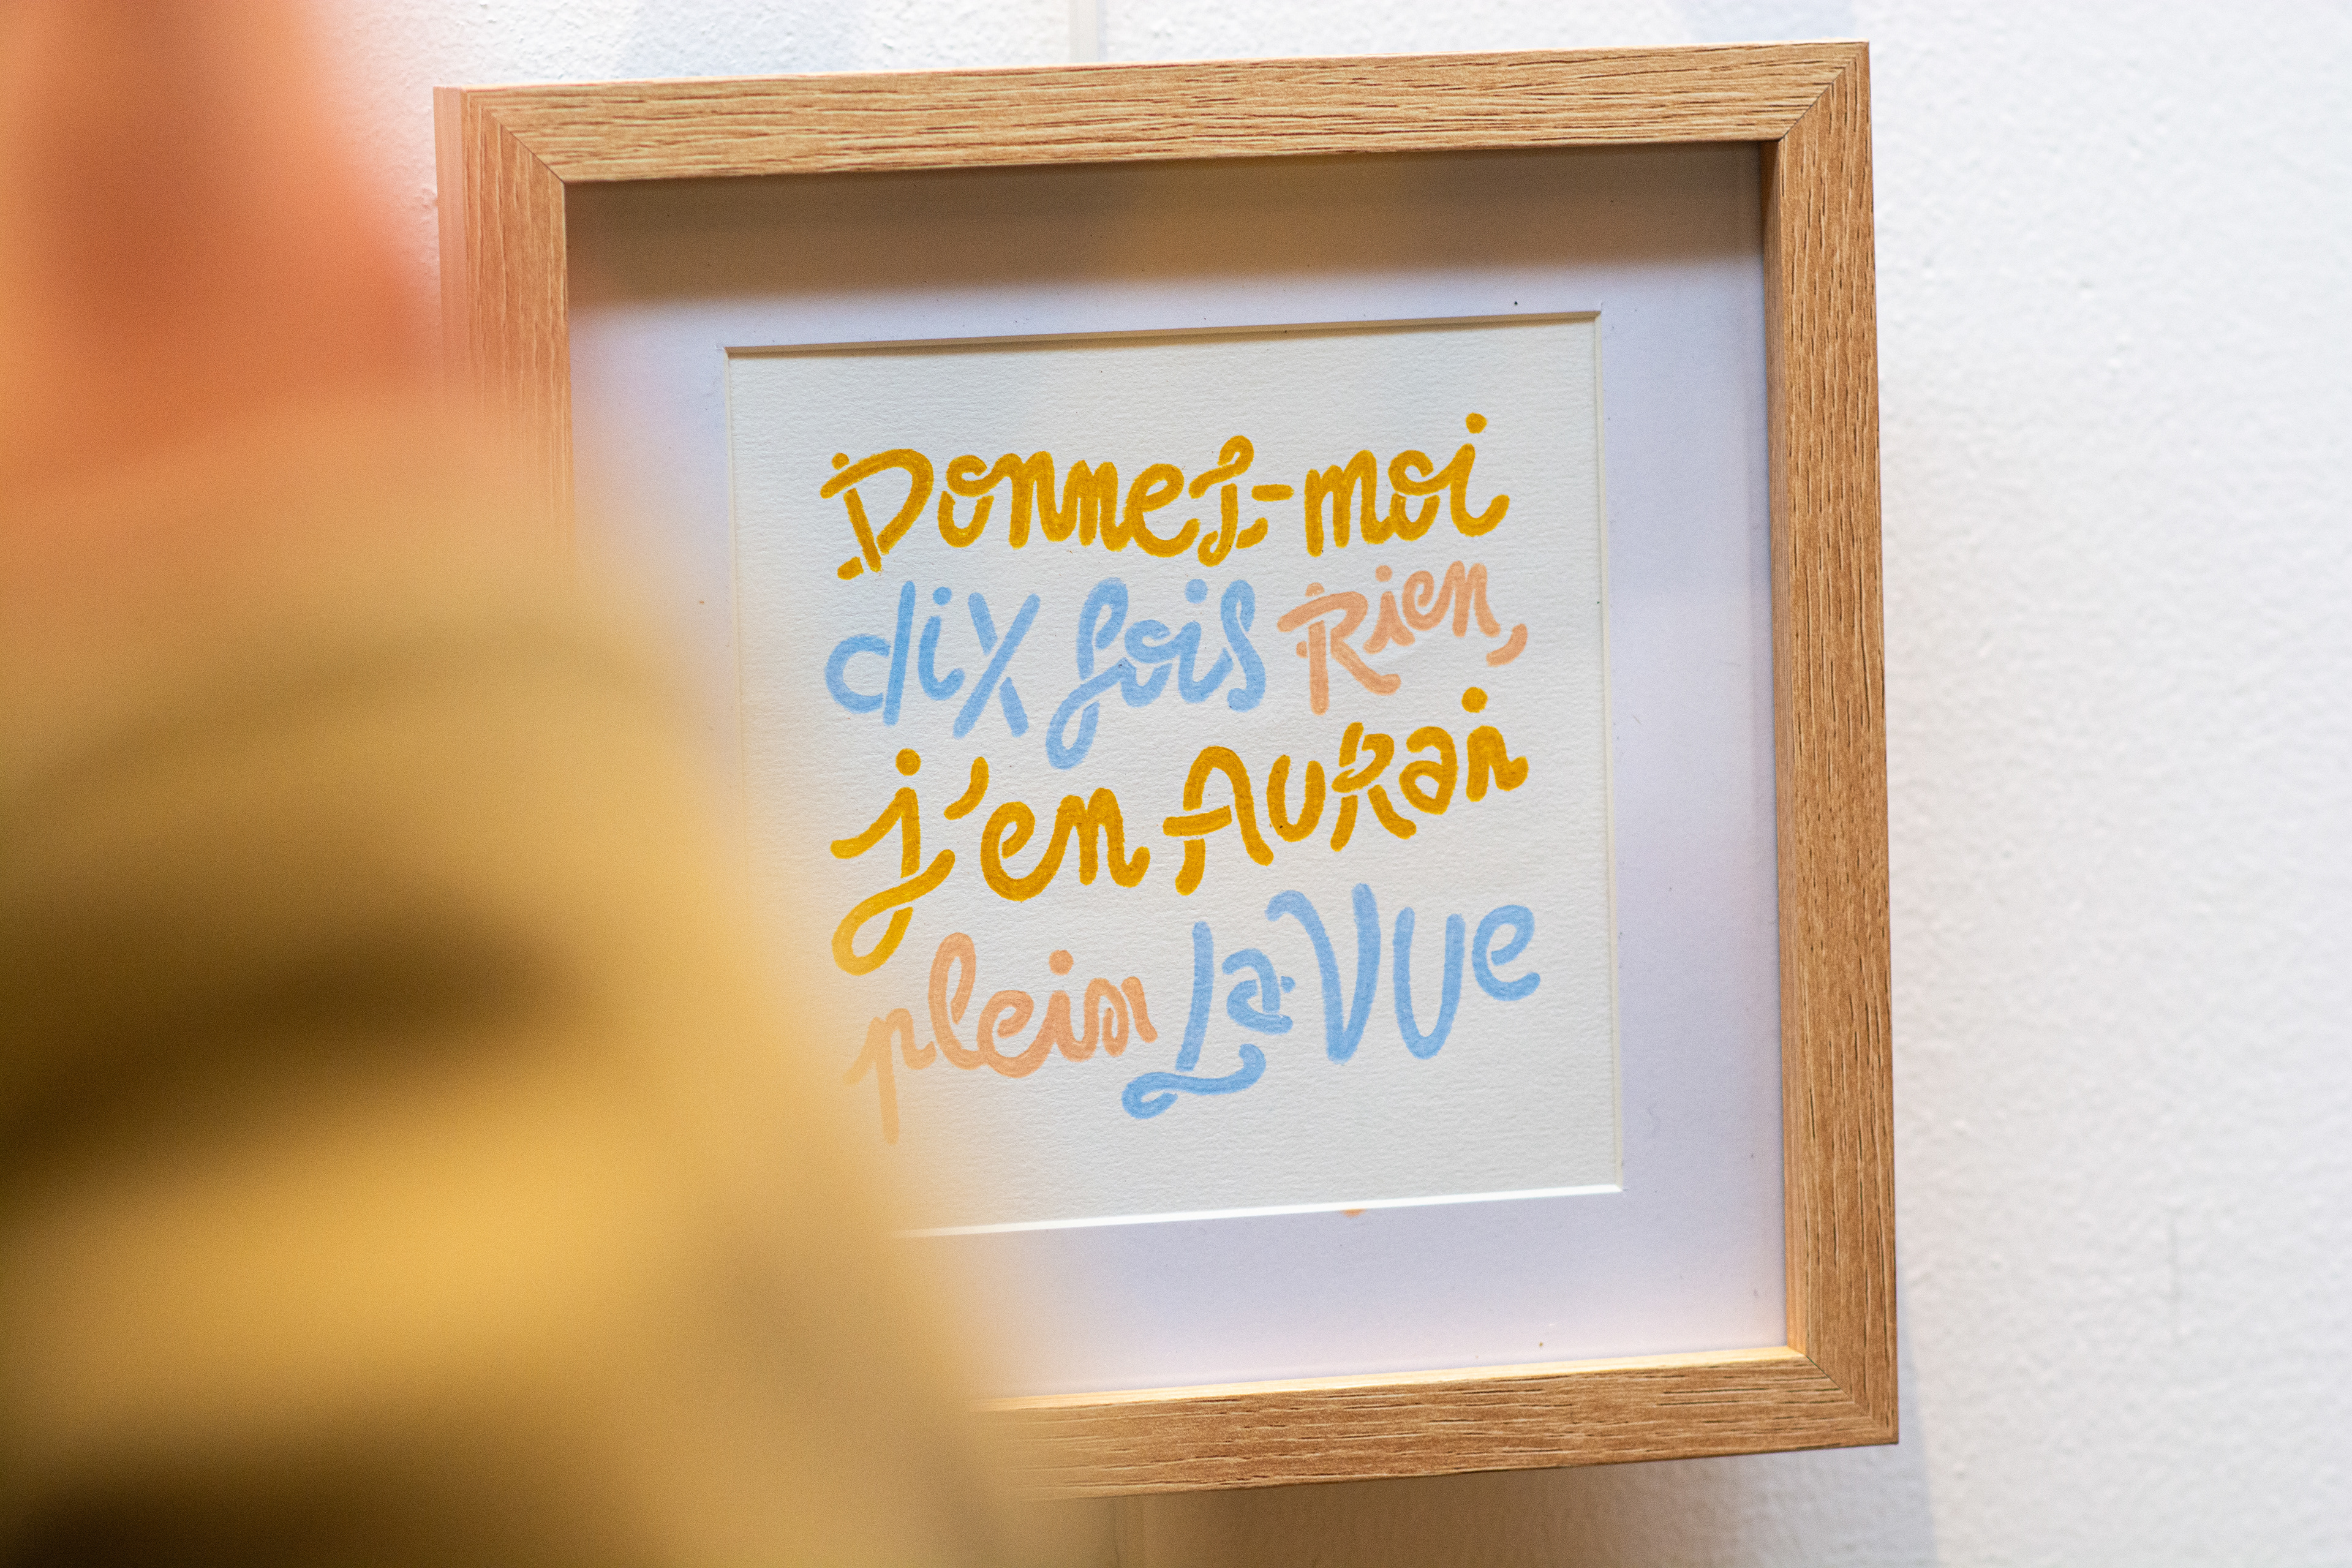 Donnez-moi
dix fois Rien,
j'en AURai
plein La VUe